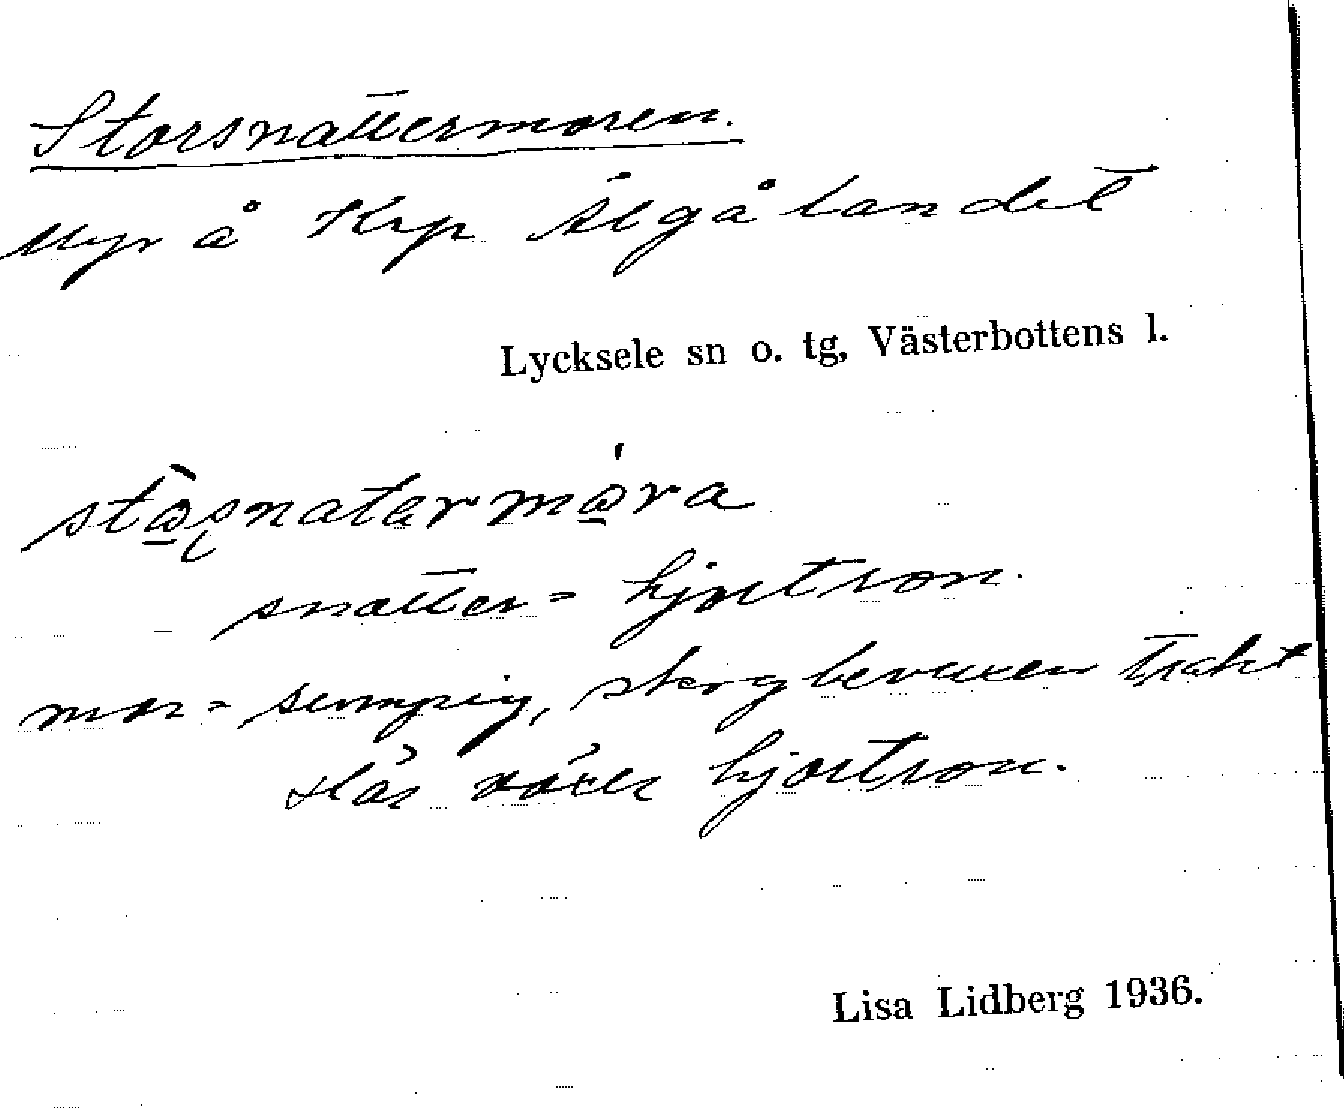 Storsnattermoren.
Myr å Krp Älgålandet
Lycksele sn o. tg, Västerbottens l.
snatter = hjortron.
mor = sumpig, skogbevuxen trakt
där växer hjortron.
Lisa Lidberg 1936.